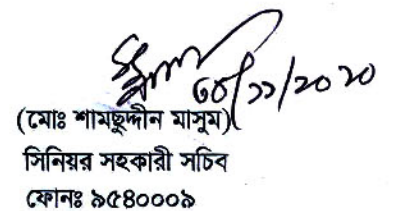 ৩০/১১/২০২০
(মোঃ শামছুদ্দীন মাসুম)
সিনিয়র সহকারী সচিব
ফোনঃ ৯৫৪০০০৯